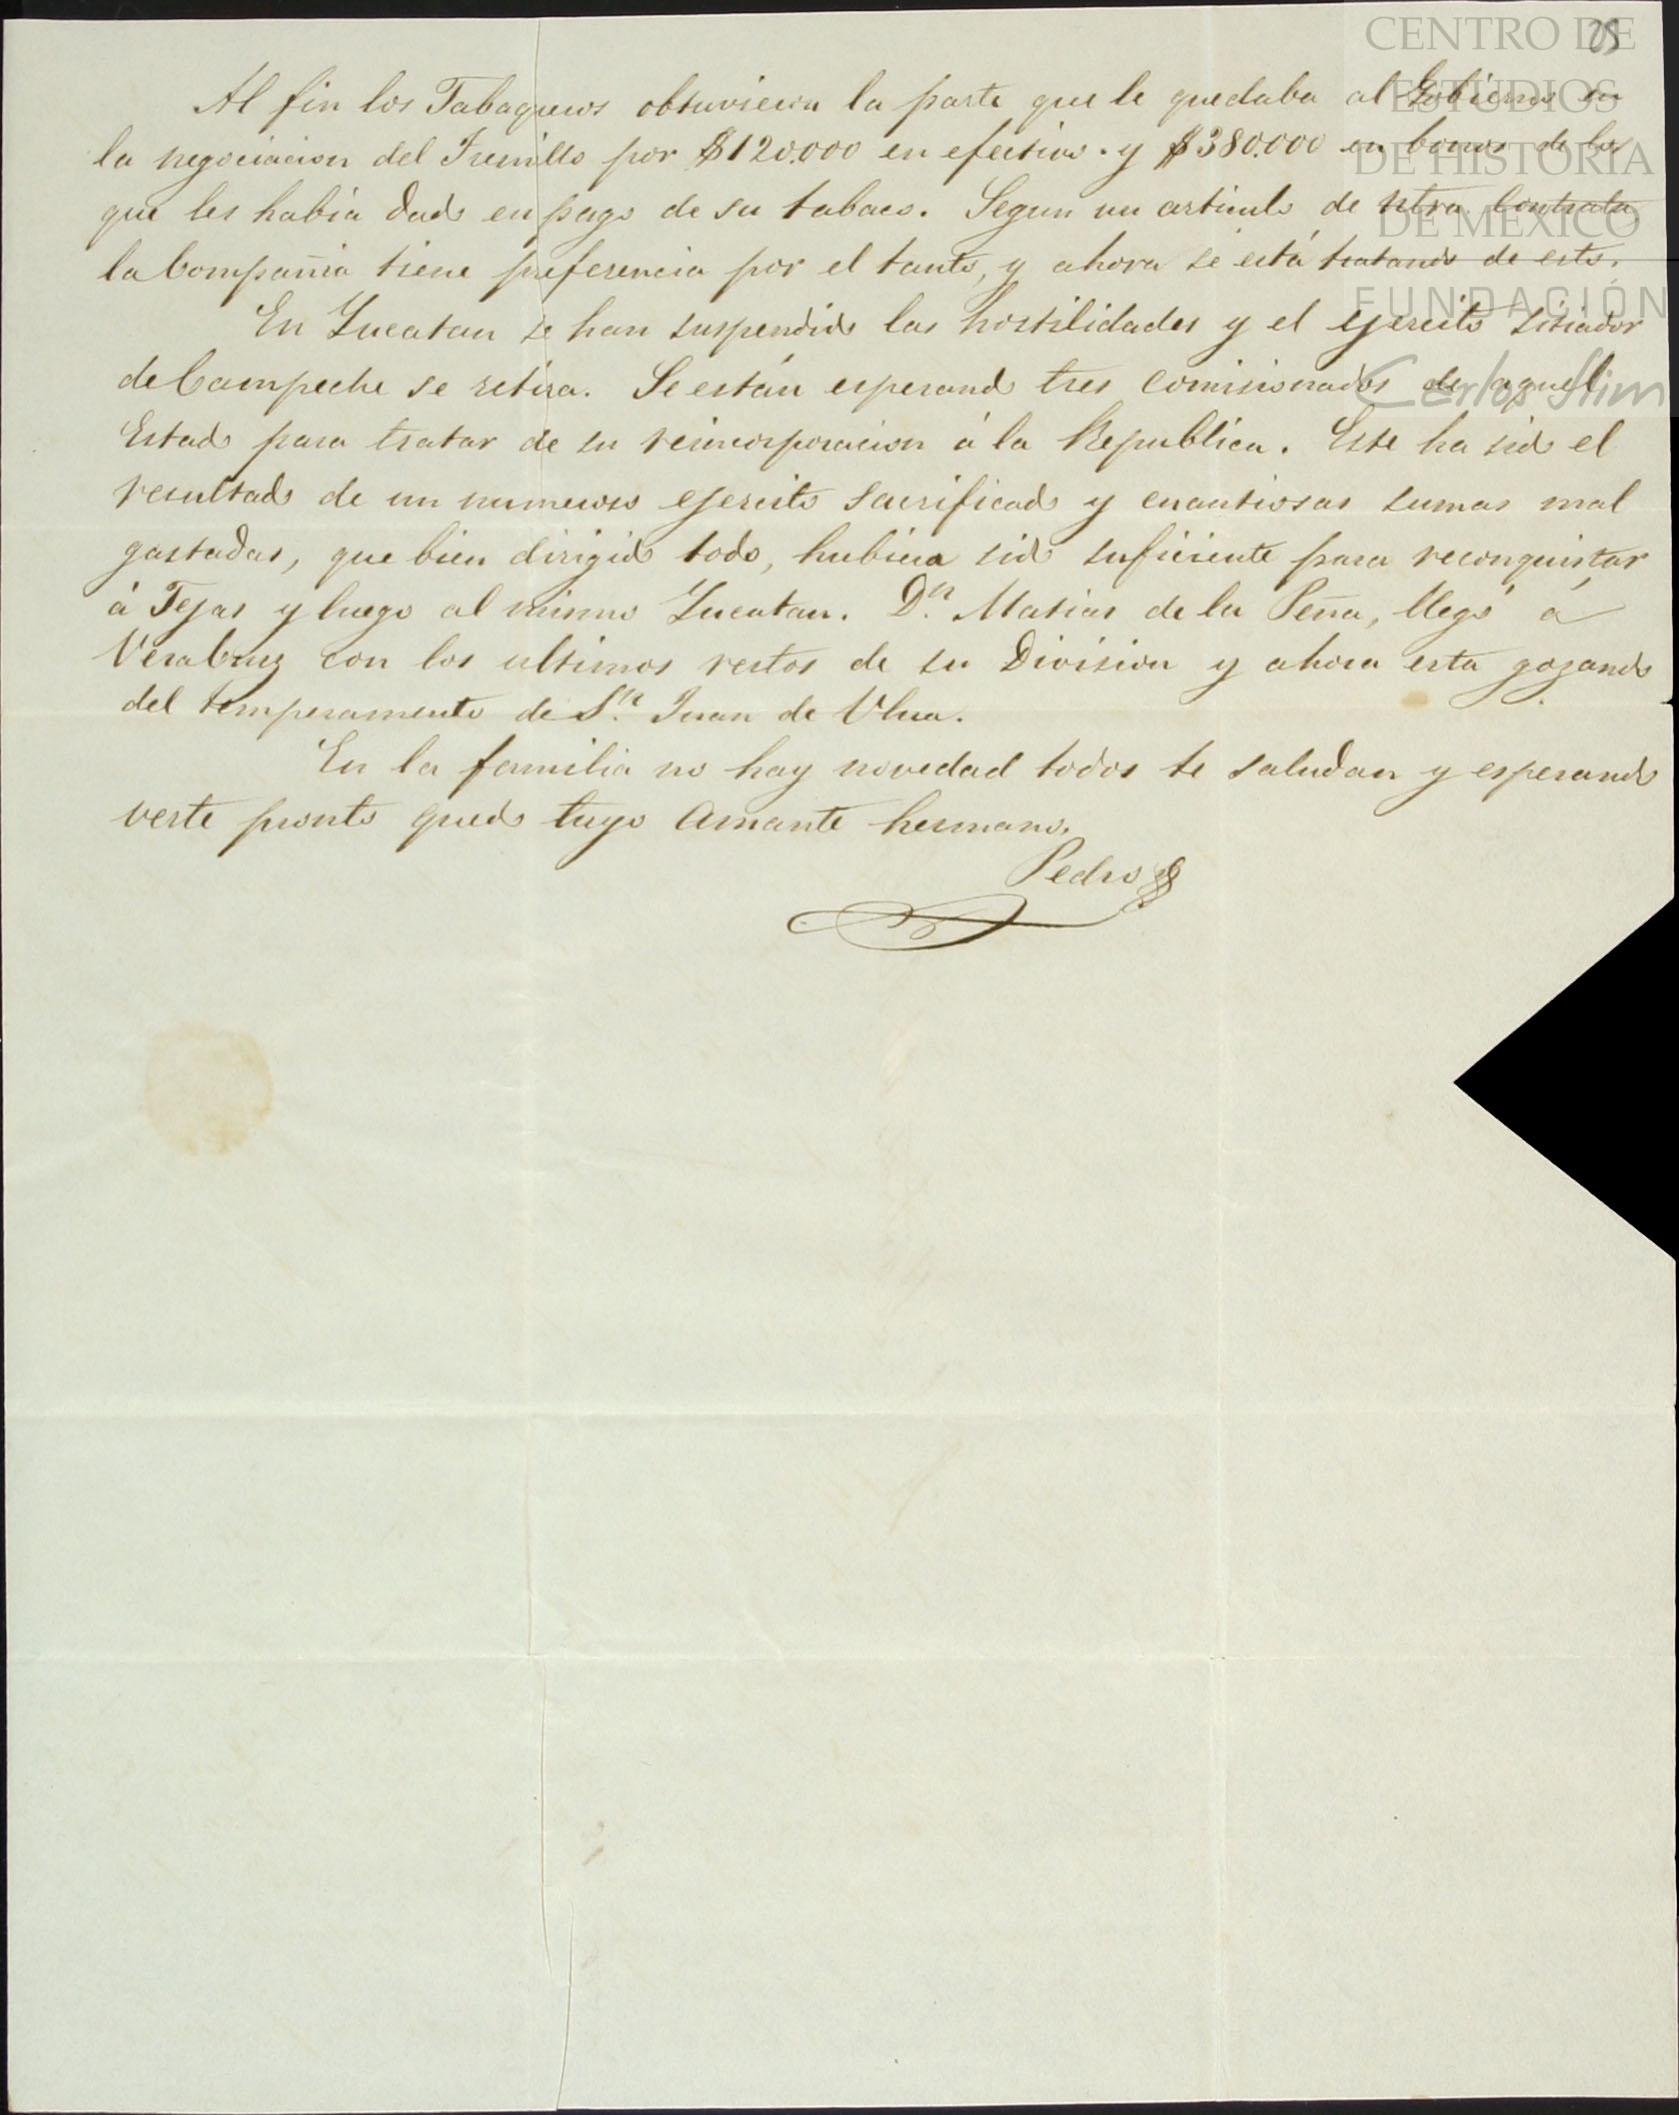 25
CENTRO DE
ESTUDIOS
DE HISTORIA
DE MEXICO
FUNDACIÓN
Carlos Slim
Al fin los Tabaqueros obtuvieron la parte que le quedaba al Gobierno en
la negociacion del Fresnillo por $120.000 en efectivo. y $380.000 en bonos de los
que les habia dado en pago de su tabaco. Segun un articulo, de ntra. Contrata,
la Compañia tiene preferencia por el tanto, y ahora se está tratando de esto.
En Yucatan se han suspendido las hostilidades y el ejercito sitiador
de Campeche se retira. Se están esperando tres comisionados de aquel
Estado para tratar de su reincorporacion á la Republica. Este ha sido el
resultado de un numeroso ejercito sacrificado y cuantiosas sumas mal
gastadas, que bien dirigido todo, hubiera sido suficiente para reconquistar
á Tejas y luego al mismo Yucatan. Dn. Matias de la Peña, llegó á
VeraCruz con los ultimos restos de su Division y ahora esta gozando
del temperamento de Sn. Juan de Ulua.
En la familia no hay novedad todos te saludan y esperando
verte pronto quedo tuyo amante hermano.
Pedro